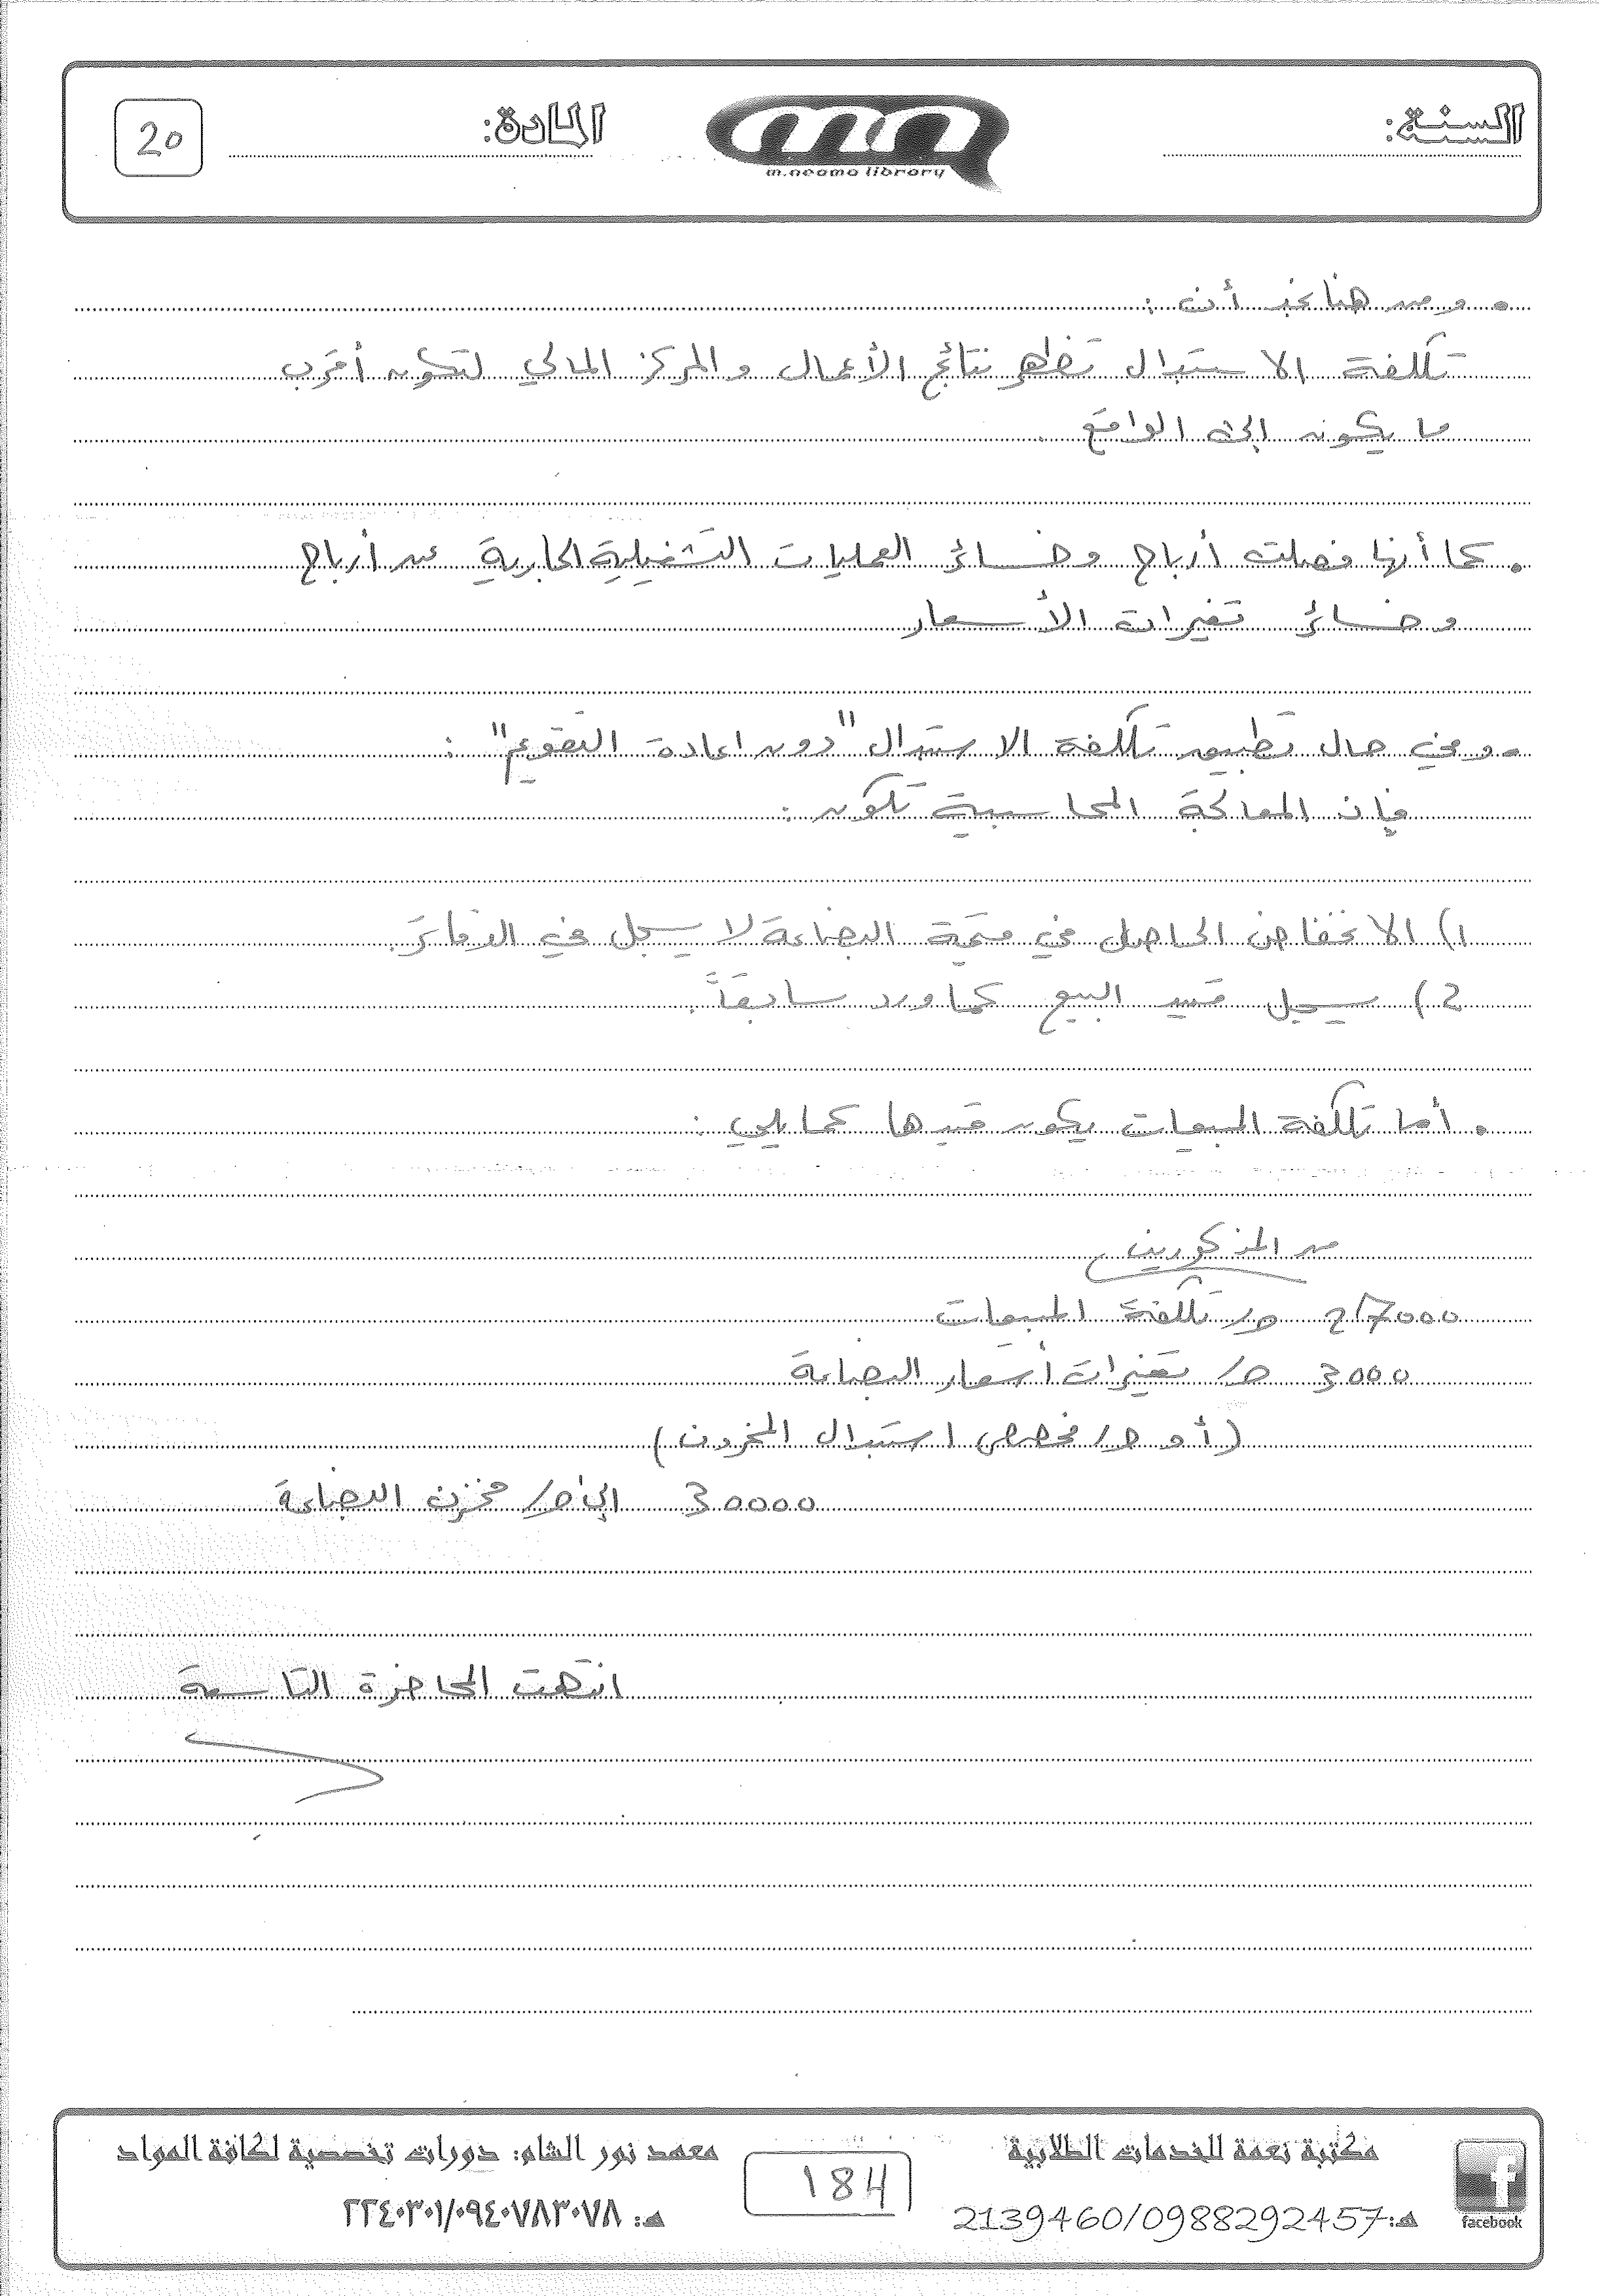 السنة:
m.neama library
المادة:
20
• ومن هنا نجد أن :
تكلفة الاستبدال تظهر نتائج الأعمال والمركز المالي لتكون أقرب
ما يكون إلى الواقع .
• كما أنها فصلت أرباح وخسائر العمليات التشغيلية الجارية عن أرباح
وخسائر تغيرات الأسعار
• وفي حال تطبيق تكلفة الاستبدال "دون اعادة التقويم" :
فإن المعالجة المحاسبية تكون :
1) الانخفاض الحاصل في قيمة البضاعة لا يسجل في الدفاتر.
2) يسجل قيد البيع كما ورد سابقاً .
• أما تكلفة المبيعات يكون قيدها كمايلي :
من المذكورين
27000 ح/ تكلفة المبيعات
3000 ح/ تغيرات أسعار البضاعة
(أو ح/ مخصص استبدال المخزون)
30000 إلى ح/ مخزن البضاعة
انتهت المحاضرة التاسعة
facebook
مكتبة نعمة للخدمات الطلابية
هـ: 2139460/0988292457
184
معهد نور الشام: دورات تخصصية لكافة المواد
هـ: ٢٢٤٠٣٠١/٠٩٤٠٧٨٣٠٧٨